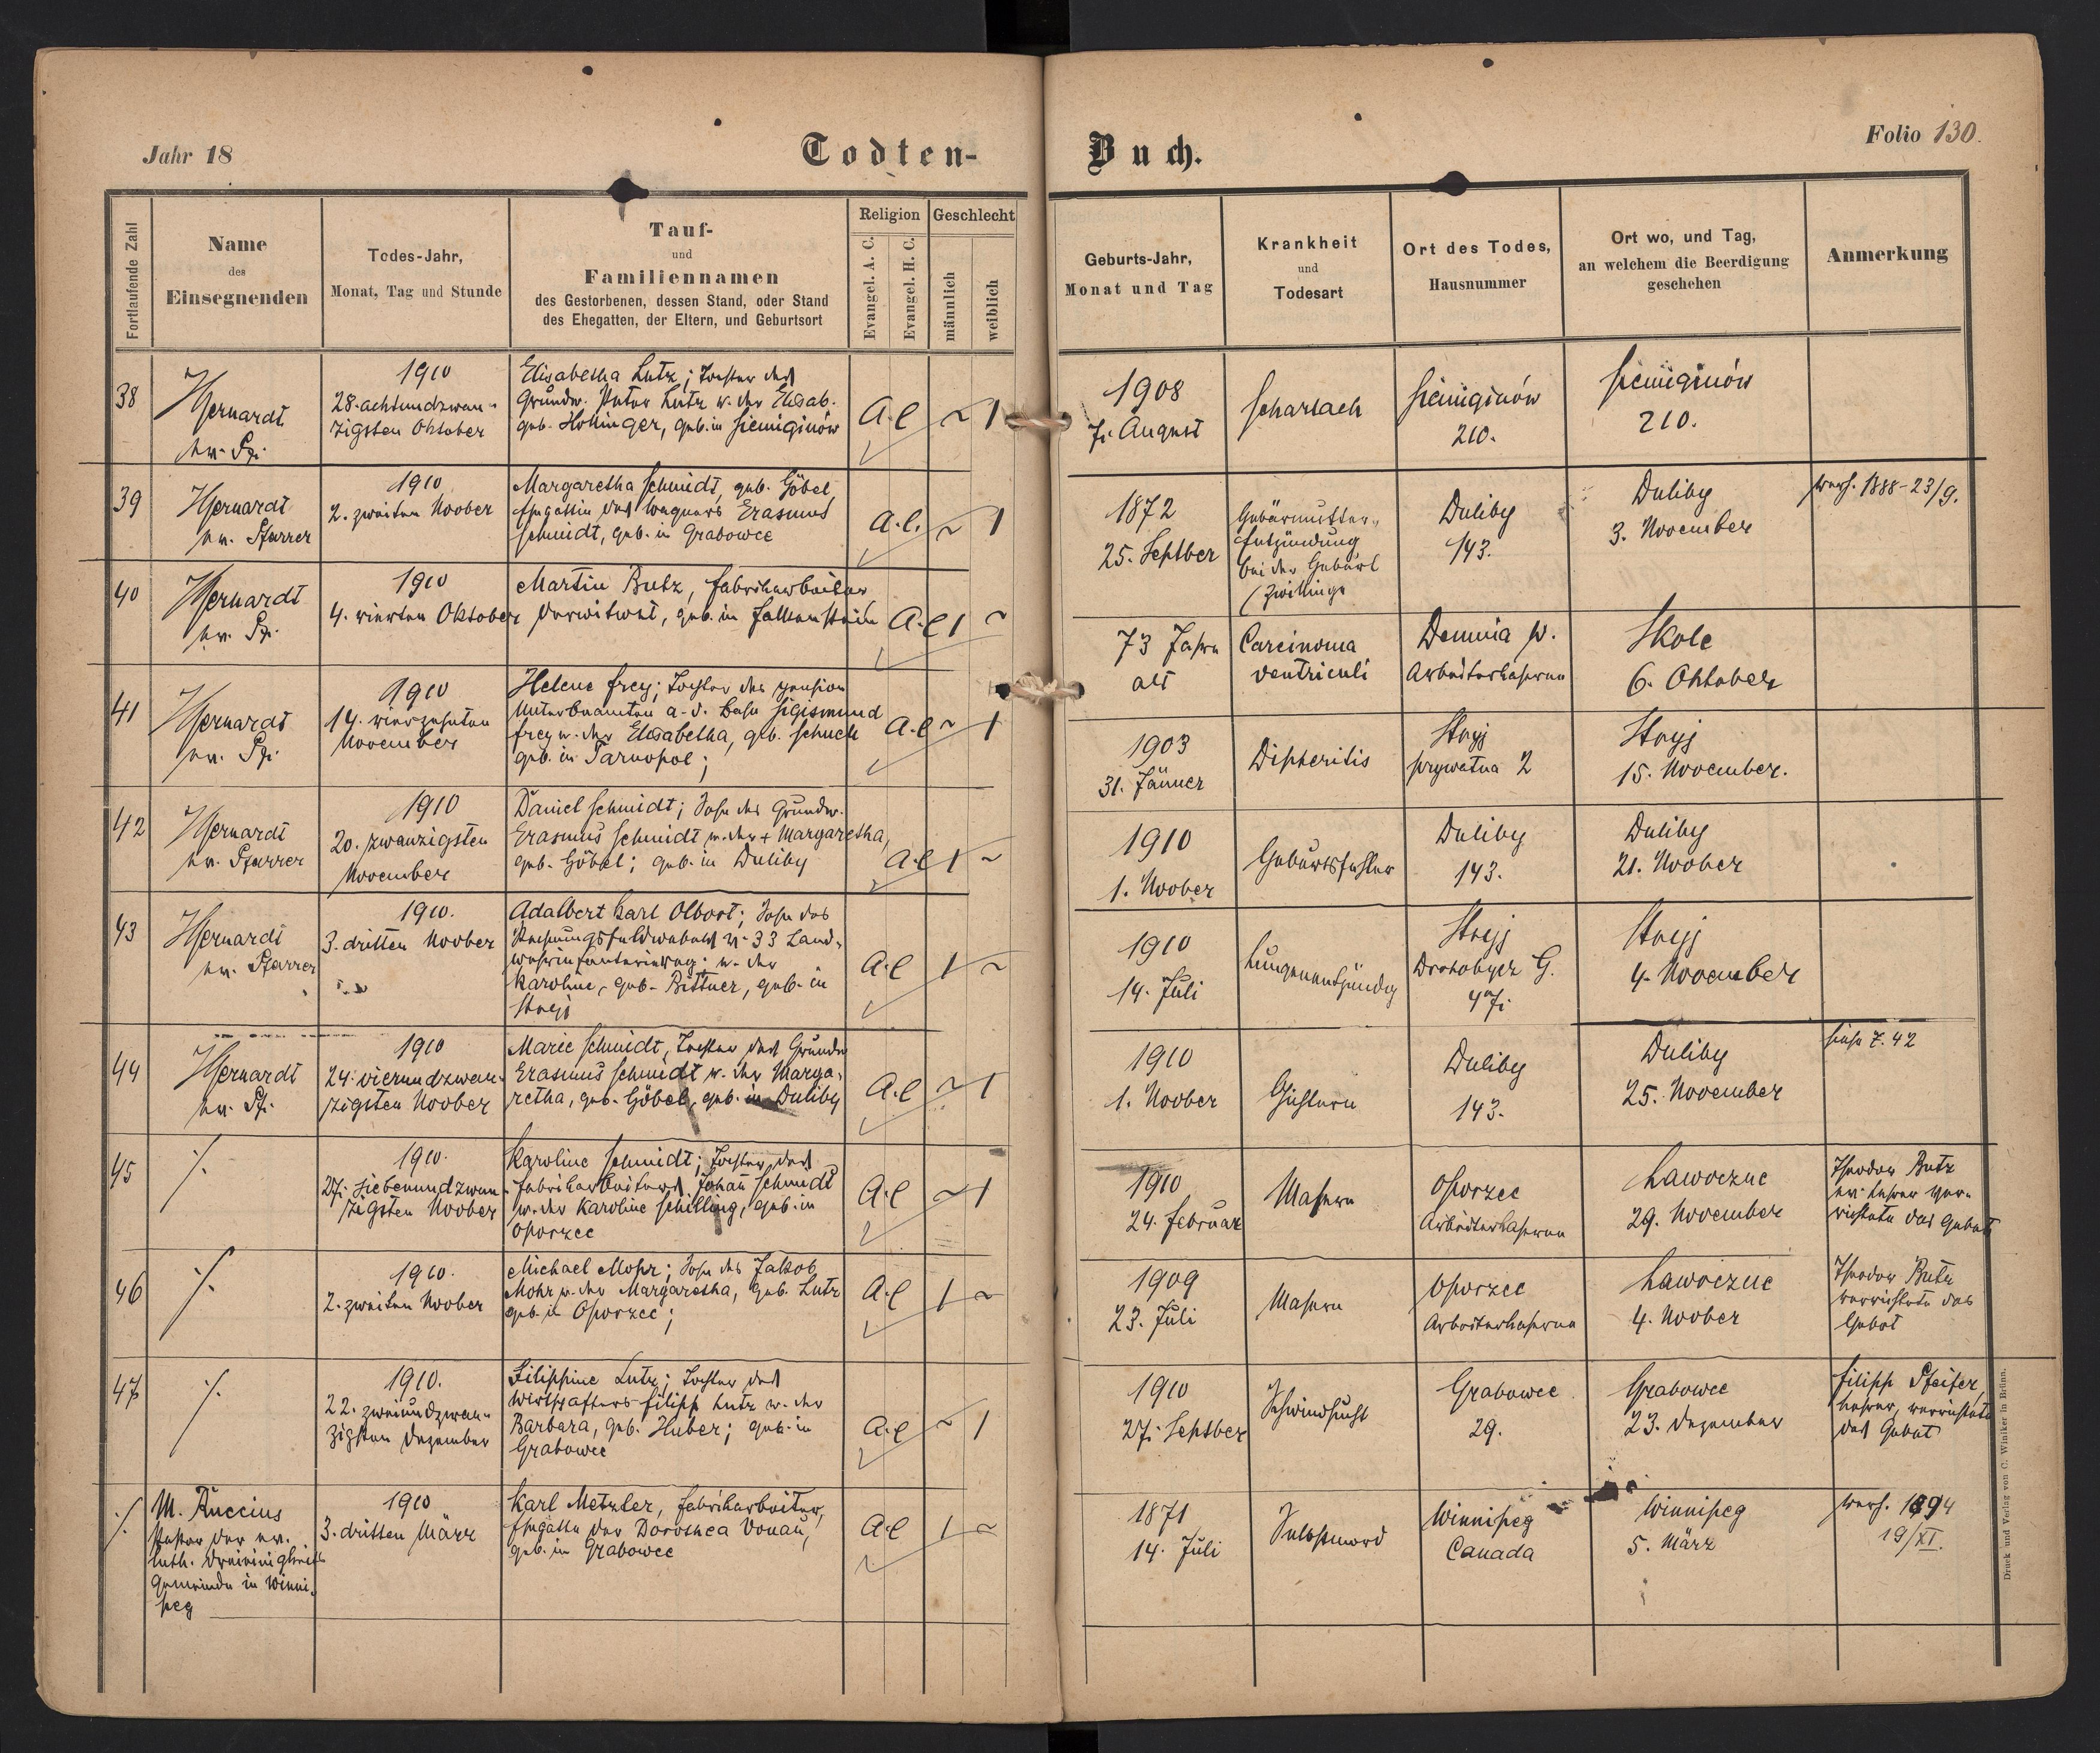 Jahr 18
Todten-
Buch.
Folio 130.
Fortlaufende Zahl
Name
des
Einsegnenden
Todes-Jahr,
Monat, Tag und Stunde
Tauf-
und
Familiennamen
des Gestorbenen, dessen Stand, oder Stand
des Ehegatten, der Eltern, und Geburtsort
Religion
Evangel. A. C.
Evangel. H. C.
Geschlecht
männlich
weiblich
Geburts-Jahr,
Monat und Tag
Krankheit
und
Todesart
Ort des Todes,
Hausnummer
Ort wo, und Tag,
an welchem die Beerdigung
geschehen
Anmerkung
38
ev. Pf.
1910
28. achtundzwan-
zigsten Oktober
Elisabetha Lutz; Tochter des
Grundw. Peter Lutz u. der Elisab.
geb. Hohinger, geb. in Siemiginów
A.C ~ 1
1908
7. August
Scharlach
Siemiginów
210.
Siemiginów
210.
39
ev. Pfarrer
1910
2. zweiten Novber
Margaretha Schmidt, geb. Göbel,
Ehegattin des Wagners Erasmus
Schmidt, geb. in Grabowce
A.C. ~ 1
1872
25. Septber
Gebärmutter-
Entzündung
bei der Geburt
(Zwillinge
Duliby
143.
Duliby
3. November
verh. 1888-23/9.
40
ev. Pf.
1910
4. vierten Oktober
Martin Butz, Fabriksarbeiter
verwitwet, geb. in Falkenstein
A.C 1 ~
73 Jahre
alt
Carcinoma
ventriculi
Demnia w.
Arbeiterkaserne
Skole
6. Oktober
41
ev. Pf.
1910
14. vierzehnten
November
Helene Frey; Tochter des pension
Unterbeamten a. d. Bahn Sigismund
Frey u. der Elisabetha, geb. Schuch
geb. in Tarnopol;
A.C ~ 1
1903
31. Jänner
Diptheritis
Stryj
prywatna 2
Stryj
15. November.
42
ev. Pfarrer
1910
20. zwanzigsten
November
Daniel Schmidt; Sohn des Grundw.
Erasmus Schmidt u. der + Margaretha,
geb. Göbel; geb. in Duliby
A.C 1 ~
1910
1. Novber
Geburtsfehler
Duliby
143.
Duliby
21. Novber
43
ev. Pfarrer
1910.
3. dritten Novber
Adalbert Karl Olbort; Sohn des
Rechnungsfeldwebels N. 33 Land-
u. der
Karoline, geb. Bittner, geb. in
Stryj
A.C 1 ~
1910
14. Juli
Lungenentzündg
Stryj
Drohobycz G.
Stryj
4. November
44
ev. Pf.
1910
24. vierundzwan-
zigsten Novber
Marie Schmidt, Tochter des Grundw
Erasmus Schmidt u. der Marga-
retha, geb. Göbel, geb. in Duliby
A.C ~ 1
1910
1. Novber
Duliby
143.
Duliby
25. November
siehe Z. 42
45
·/.
1910.
27. siebenundzwan-
zigsten Novber
Karoline Schmidt; Tochter des
Fabriksarbeiters Johan Schmidt
u. der Karoline Schilling, geb. in
Oporzec
A.C ~ 1
1910
24. Februar
Masern
Oporzec
Arbeiterkaserne
Lawoczne
29. November
Theodor Butz
ev. Lehrer ver-
richtete das Gebet
46
·/.
1910.
2. zweiten Novber
Michael Mohr; Sohn des Jakob
Mohr u. der Margaretha, geb. Lutz
geb. in Oporzec;
A.C 1 ~
1909
23. Juli
Masern
Oporzec
Arbeiterkaserne
Lawoczne
4. Novber
Theodor Butz
verrichtete das
Gebet
47
·/.
1910.
22. zweiundzwan-
zigsten Dezember
Filippine Lutz; Tochter des
Wirtschafters Filipp Lutz u. der
Barbara, geb. Huber; geb. in
Grabowce
A.C ~ 1
1910
27. Septber
Schwindsucht
Grabowce
29.
Grabowce
23. Dezember
Filipp Pfeifer,
Lehrer, verrichtete
das Gebet
·/.
M. Ruccius
Pastor der ev.
luth. Dreieinigkeits
Gemeinde in Winni-
peg
1910
3. dritten März
Karl Metzler, Fabriksarbeiter,
Ehegatte der Dorothea Donau,
geb. in Grabowce
A.C 1 ~
1871
14. Juli
Selbstmord
Winnipeg
Canada
Winnipeg
5. März
verh. 1894
19/XI.
Druck und Verlag von C. Winiker in Brünn.